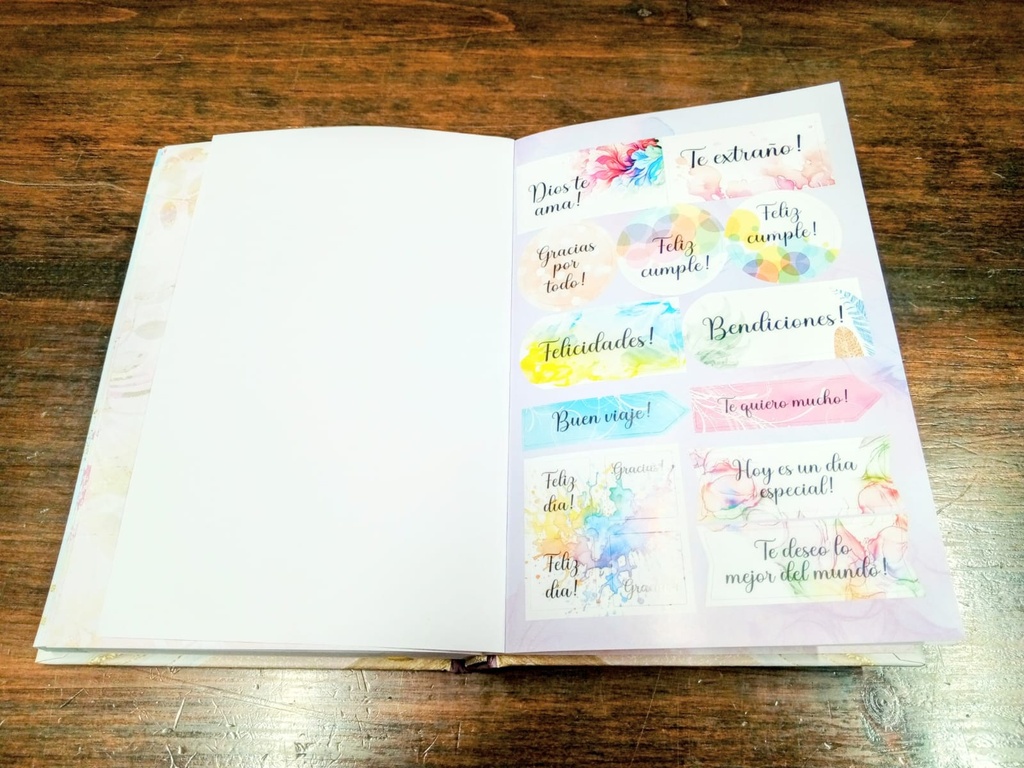 Dios te
ama!
Te extraño!
Gracias
por
todo!
Feliz
cumple!
Feliz
cumple!
Felicidades!
Bendiciones!
Buen viaje!
Te quiero mucho!
Feliz
día!
Gracias!
Feliz
día!
Hoy es un día
especial!
Te deseo lo
mejor del mundo!